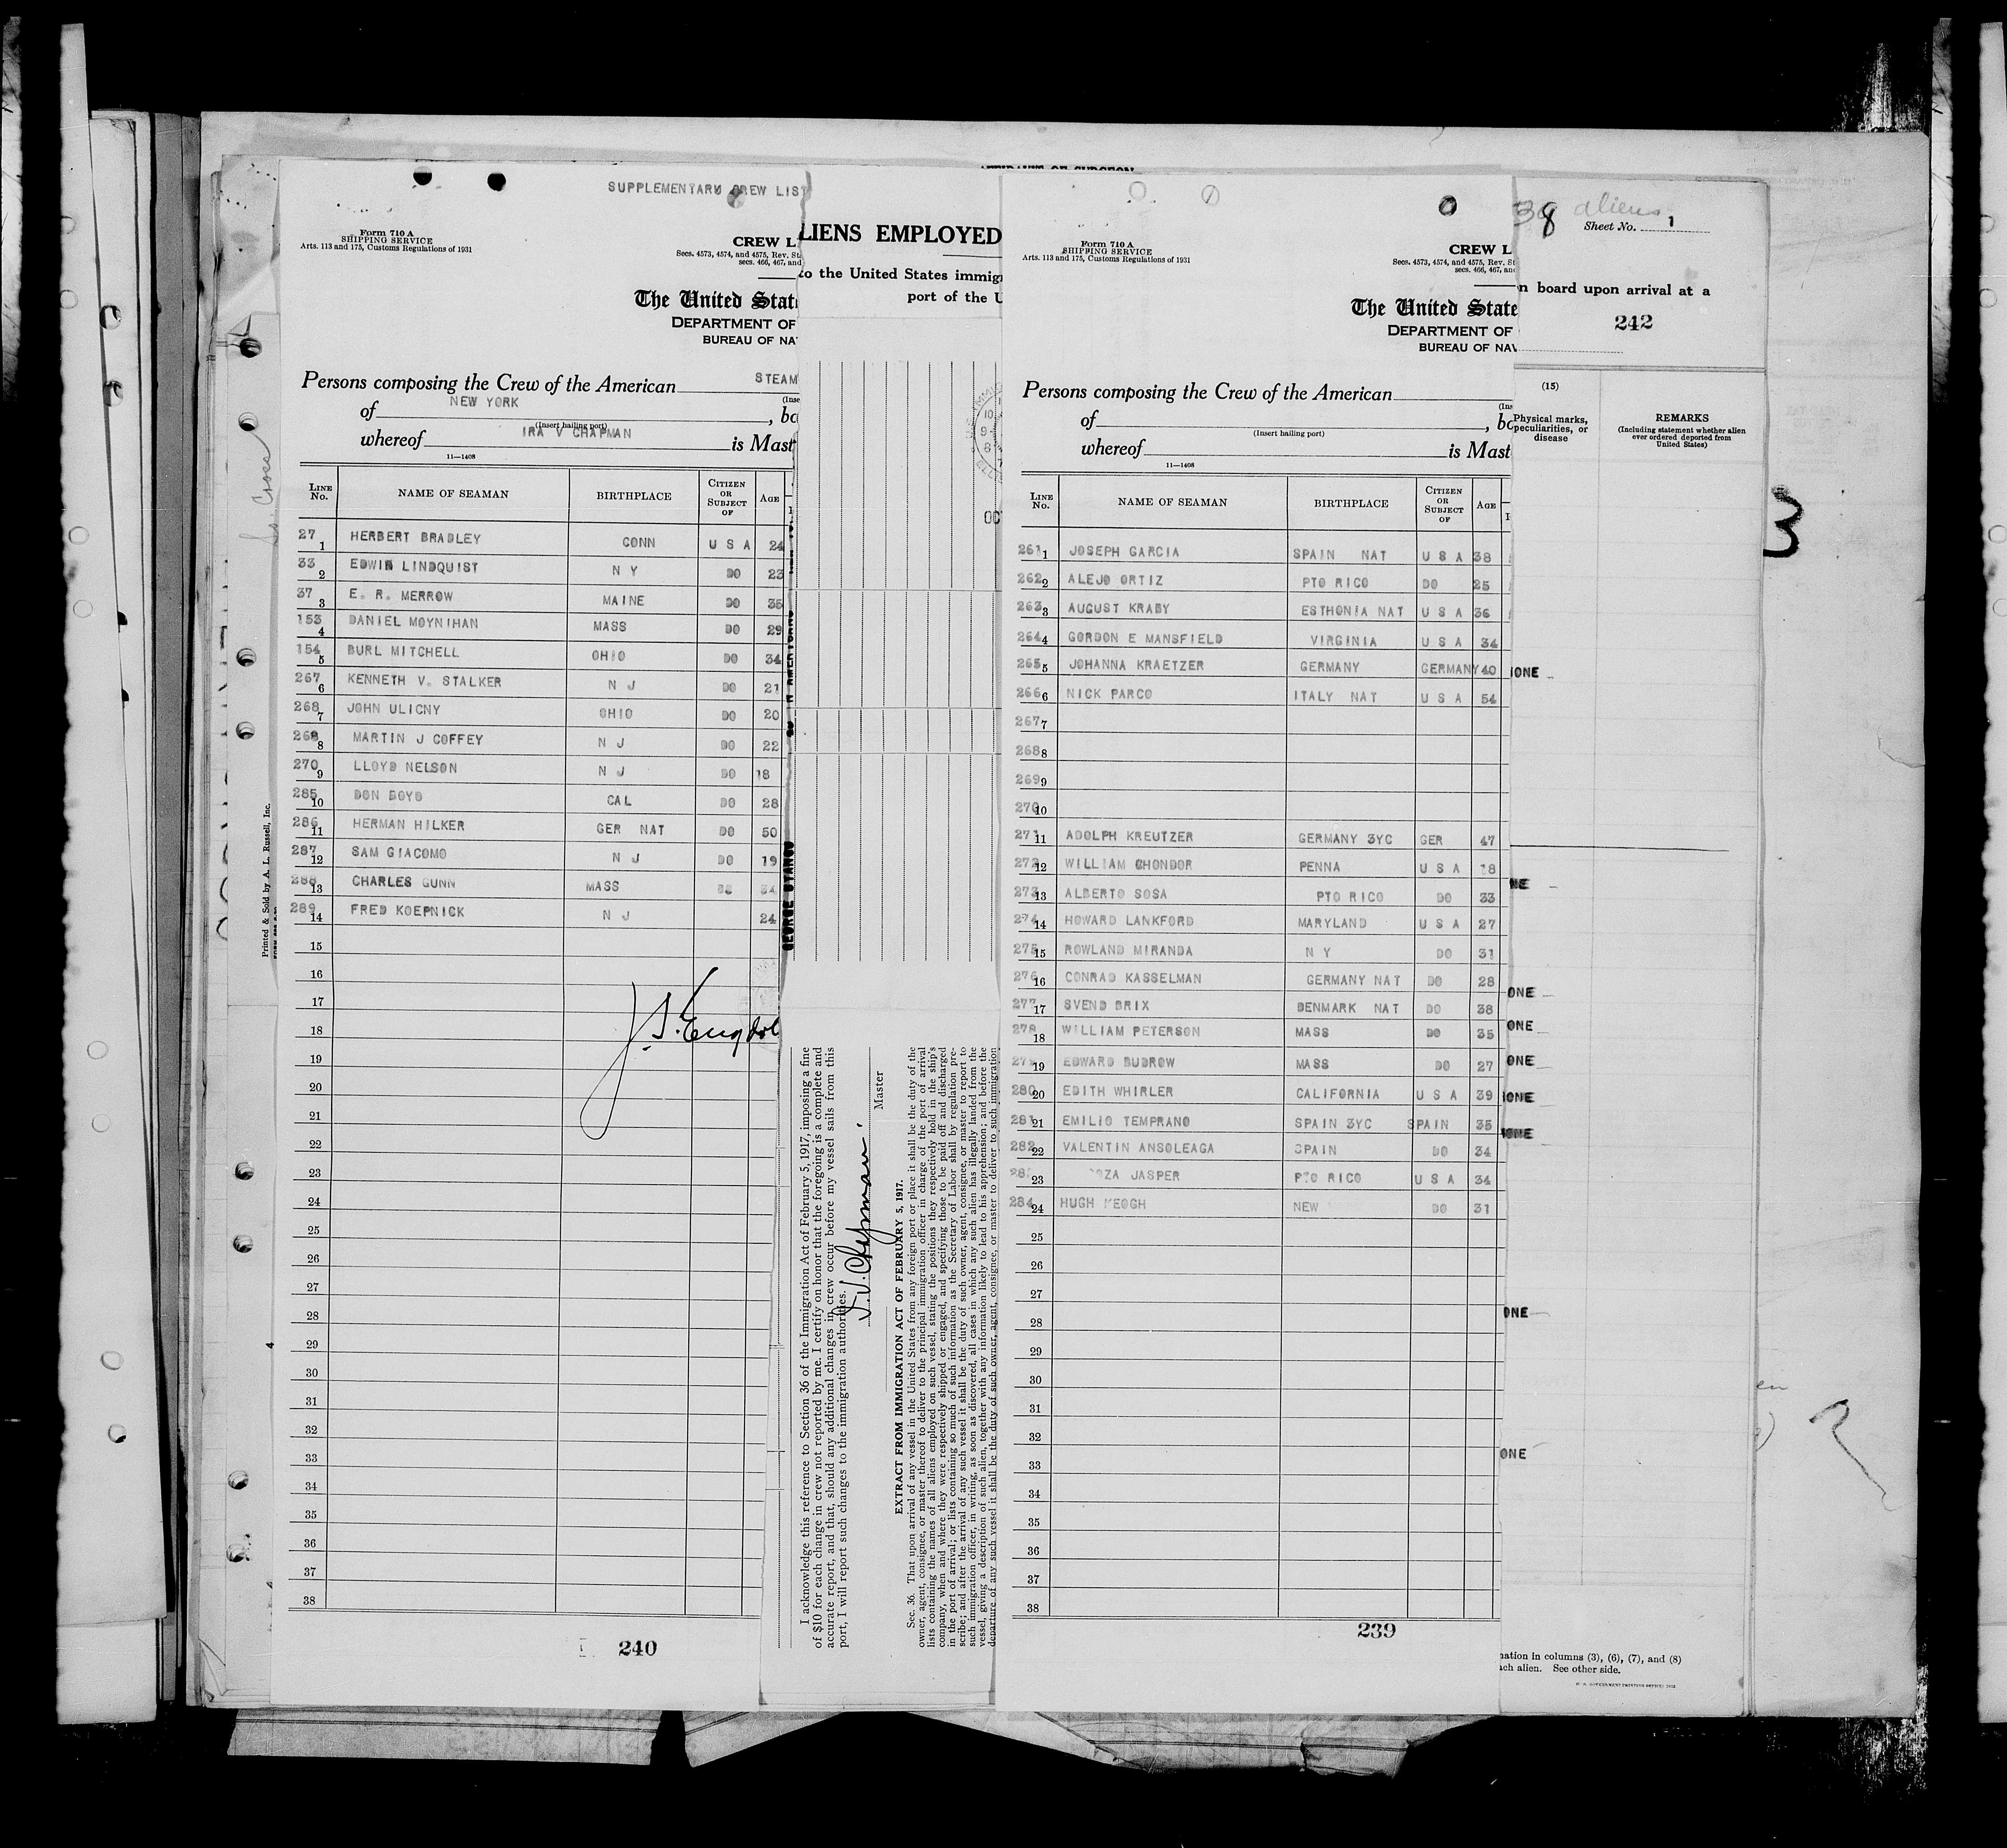 SUPPLEMENTARY CREW LIST
Form 710 A
SHIPPING SERVICE
Arts. 113 and 175, Customs Regulations of 1931
CREW L
Secs. 4573, 4574, and 4575, Rev. St
secs. 466, 467, and
The United Stat
DEPARTMENT OF
BUREAU OF NA
Persons composing the Crew of the American STEAM
(Inse
of NEW YORK , bo
(Insert hailing port)
whereof IRA V CHAPMAN is Mast
11—1408
LINE No. NAME OF SEAMAN BIRTHPLACE CITIZEN OR SUBJECT OF AGE
27 1 HERBERT BRADLEY CONN U S A 24
33 2 EDWIN LINDQUIST N Y DO 23
37 3 E. R. MERROW MAINE DO 35
153 4 DANIEL MOYNIHAN MASS DO 29
154 5 BURL MITCHELL OHIO DO 34
267 6 KENNETH V. STALKER N J DO 21
268 7 JOHN ULICNY OHIO DO 20
269 8 MARTIN J COFFEY N J DO 22
270 9 LLOYD NELSON N J DO 18
285 10 DON BOYD CAL DO 28
286 11 HERMAN HILKER GER NAT DO 50
287 12 SAM GIACOMO N J DO 19
288 13 CHARLES GUNN MASS
289 14 FRED KOEPNICK N J 24
15
16
17
18
19
20
21
22
23
24
25
26
27
28
29
30
31
32
33
34
35
36
37
38
240
Printed & Sold by A. L. Russell, Inc.
LIENS EMPLOYED
to the United States immig
port of the U
GEORGE STANCO
I acknowledge this reference to Section 36 of the Immigration Act of February 5, 1917, imposing a fine
of $10 for each change in crew not reported by me. I certify on honor that the foregoing is a complete and
accurate report, and that, should any additional changes in crew occur before my vessel sails from this
port, I will report such changes to the immigration authorities.
I.V. Chapman
Master
EXTRACT FROM IMMIGRATION ACT OF FEBRUARY 5, 1917.
Sec. 36. That upon arrival of any vessel in the United States from any foreign port or place it shall be the duty of the
owner, agent, consignee, or master thereof to deliver to the principal immigration officer in charge of the port of arrival
lists containing the names of all aliens employed on such vessel, stating the positions they respectively hold in the ship's
company, when and where they were respectively shipped or engaged, and specifying those to be paid off and discharged
in the port of arrival; or lists containing so much of such information as the Secretary of Labor shall by regulation pre-
scribe; and after the arrival of any such vessel it shall be the duty of such owner, agent, consignee, or master to report to
such immigration officer, in writing, as soon as discovered, all cases in which any such alien has illegally landed from the
vessel, giving a description of such alien, together with any information likely to lead to his apprehension; and before the
departure of any such vessel it shall be the duty of such owner, agent, consignee, or master to deliver to such immigration
Form 710 A
SHIPPING SERVICE
Arts. 113 and 175, Customs Regulations of 1931
CREW L
Secs. 4573, 4574, and 4575, Rev. St
secs. 466, 467, and
The United State
DEPARTMENT OF
BUREAU OF NAV
Persons composing the Crew of the American
(Ins
of , bo
(Insert hailing port)
whereof is Mast
11—1408
LINE No. NAME OF SEAMAN BIRTHPLACE CITIZEN OR SUBJECT OF AGE
261 1 JOSEPH GARCIA SPAIN NAT U S A 38
262 2 ALEJO ORTIZ PTO RICO DO 25
263 3 AUGUST KRABY ESTHONIA NAT U S A 36
264 4 GORDON E MANSFIELD VIRGINIA U S A 34
265 5 JOHANNA KRAETZER GERMANY GERMANY 40
266 6 NICK PARCO ITALY NAT U S A 54
267 7
268 8
269 9
270 10
271 11 ADOLPH KREUTZER GERMANY 3YC GER 47
272 12 WILLIAM CHONDOR PENNA U S A 18
273 13 ALBERTO SOSA PTO RICO DO 33
274 14 HOWARD LANKFORD MARYLAND U S A 27
275 15 ROWLAND MIRANDA N Y DO 31
276 16 CONRAD KASSELMAN GERMANY NAT DO 28
277 17 SVEND BRIX DENMARK NAT DO 38
278 18 WILLIAM PETERSON MASS DO 35
279 19 EDWARD BUDROW MASS DO 27
280 20 EDITH WHIRLER CALIFORNIA U S A 39
281 21 EMILIO TEMPRANO SPAIN 3YC SPAIN 35
282 22 VALENTIN ANSOLEAGA SPAIN DO 34
23 JASPER PTO RICO U S A 34
284 24 HUGH KEOGH NEW DO 31
25
26
27
28
29
30
31
32
33
34
35
36
37
38
239
38 aliens
Sheet No. 1
n board upon arrival at a
242
(15)
Physical marks, peculiarities, or disease
REMARKS
(Including statement whether alien ever ordered deported from United States)
IONE
NE
ONE
ONE
ONE
IONE
IONE
ONE
ONE
3
nation in columns (3), (6), (7), and (8)
ach alien. See other side.